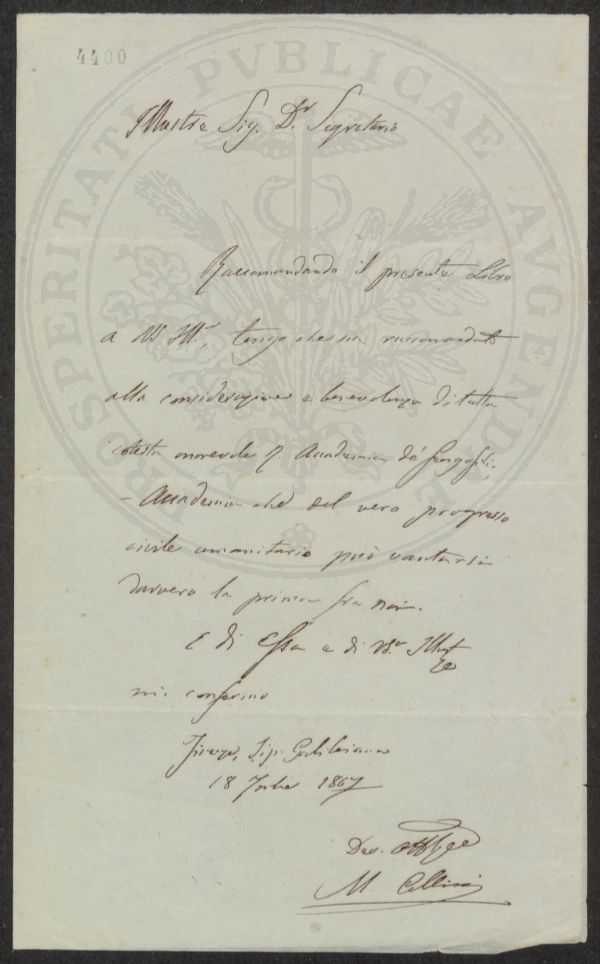 4400
PROSPERITATI PVBLICAE AVGENDAE
Illustre Sig. Dr. Segretario
Raccomandando il presente Libro
a VS Ill.a, tengo che sia raccomandato
alla considerazione e benevolenza di tutta
cotesta onorevole Accademia de' Georgofili
- Accademia che del vero progresso
civile umanitario può vantarsi
davvero la prima fra noi.
E di Essa e di VS.a Illust
mi confermo
Firenze, Tip. Galileiana
18 1867
Dev.
M. Cellini